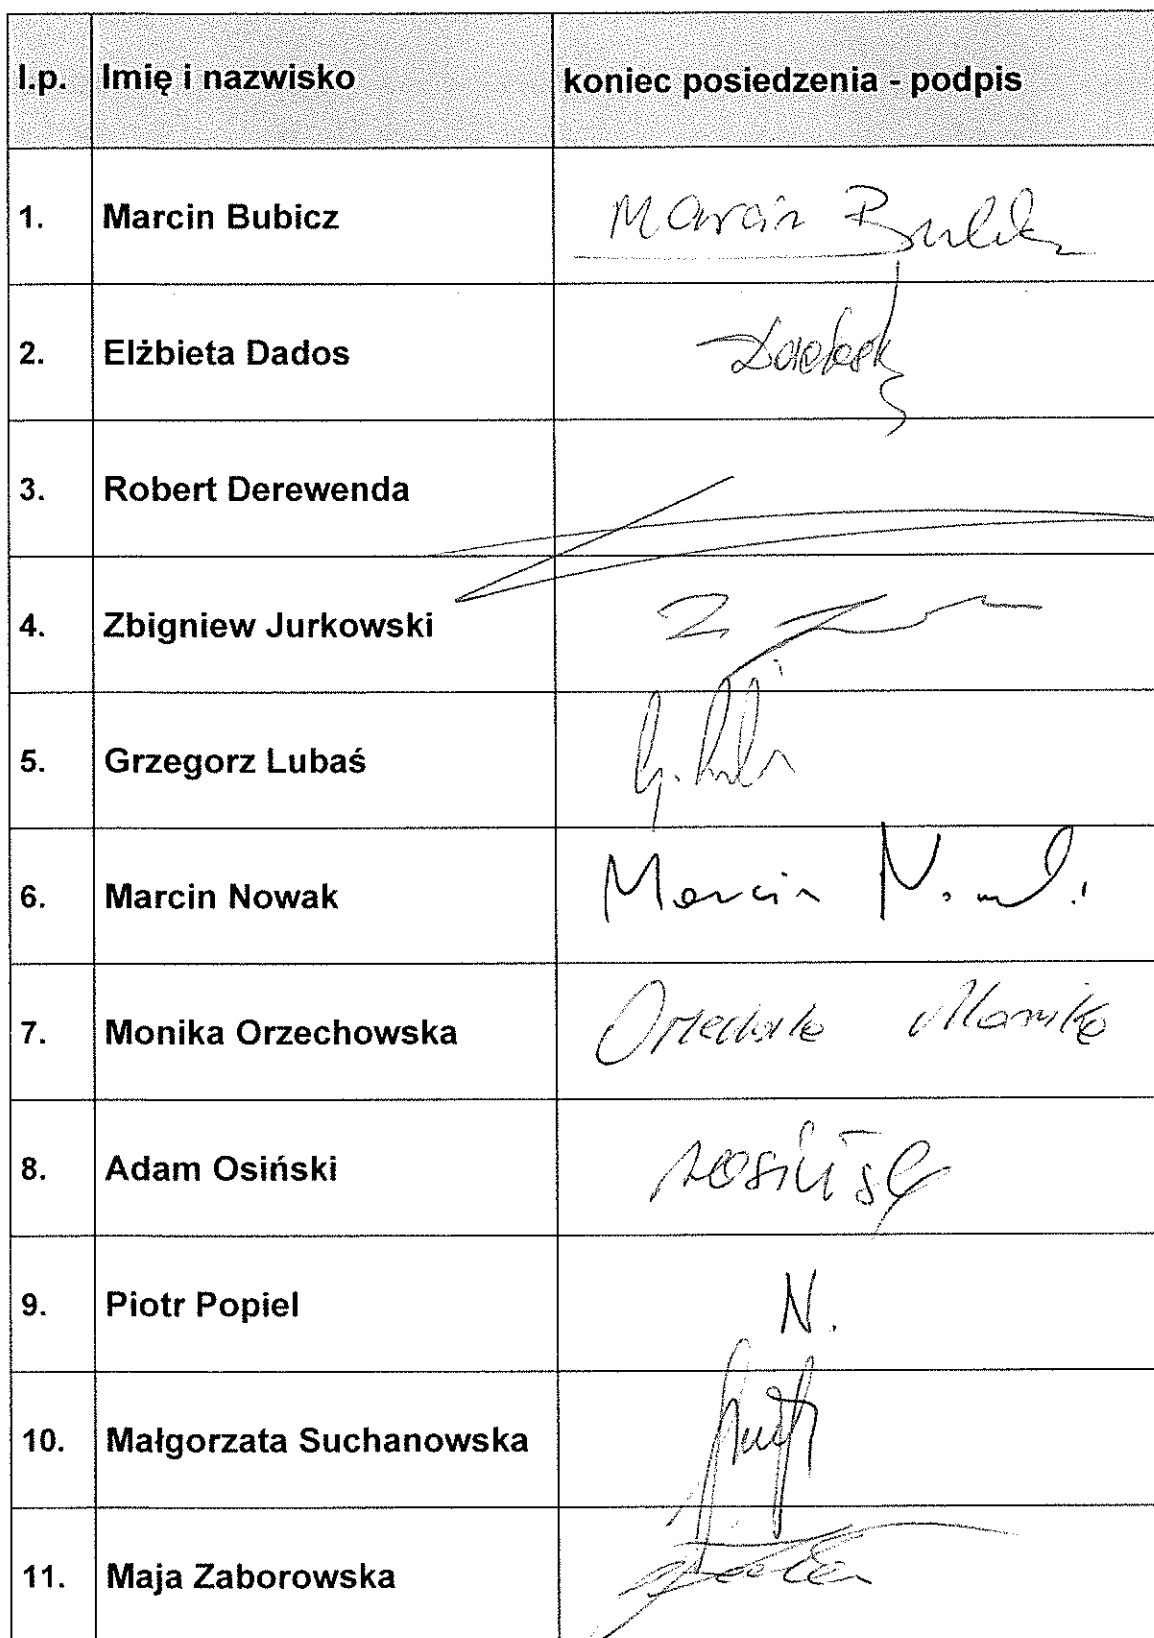 l.p. Imię i nazwisko koniec posiedzenia - podpis
1. Marcin Bubicz Marcin
2. Elżbieta Dados
3. Robert Derewenda
4. Zbigniew Jurkowski Z.
5. Grzegorz Lubaś G.
6. Marcin Nowak Marcin
7. Monika Orzechowska Monika
8. Adam Osiński
9. Piotr Popiel N.
10. Małgorzata Suchanowska
11. Maja Zaborowska